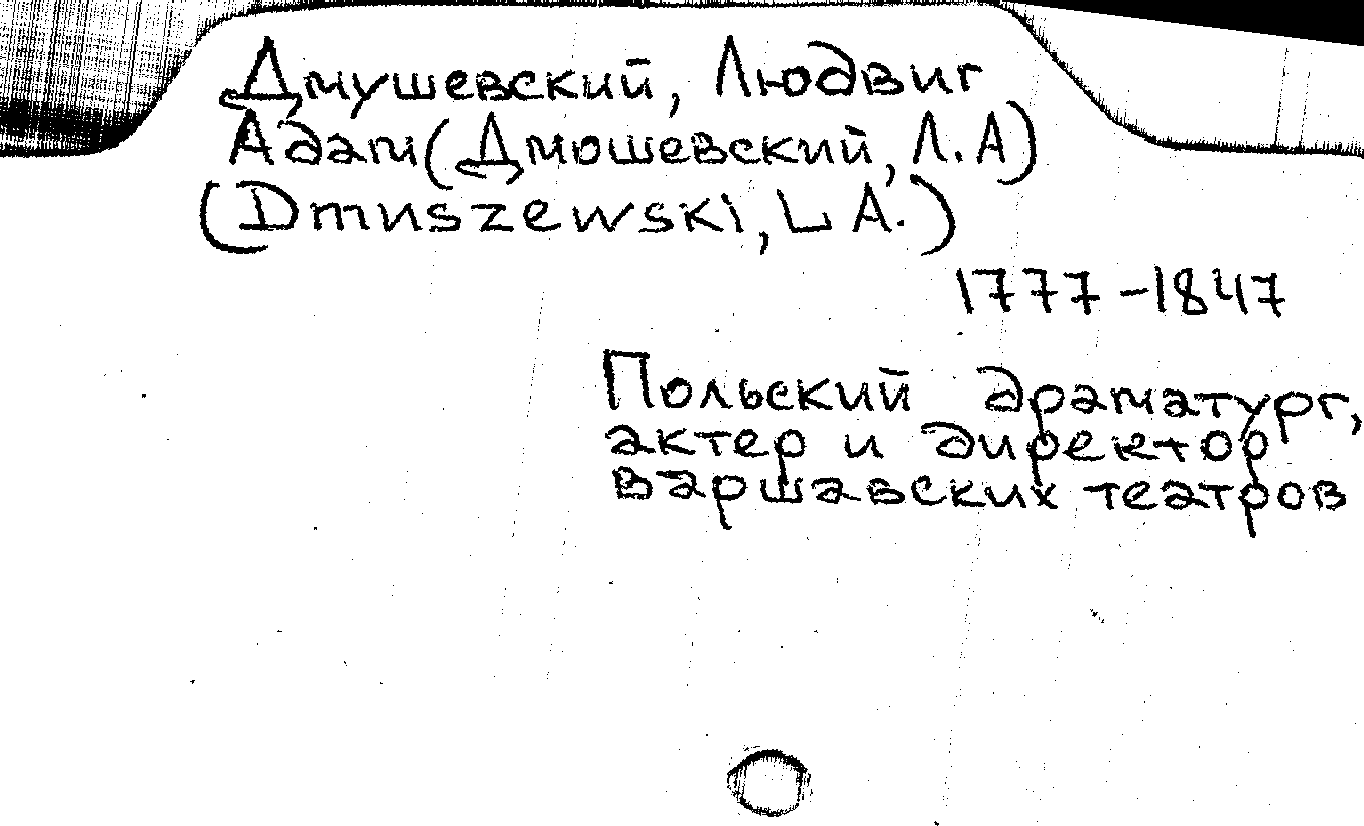 Дмушевский, Людвиг
Адам (Дмошевский, Л.А)
(Dmuszewski, L A.)
1777-1847
Польский драматург,
актер и директор
варшавских театров